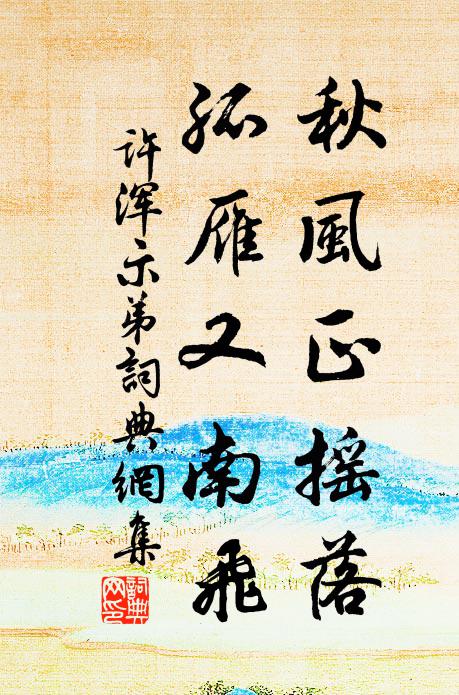 秋風正摇落
孤雁又南飛
许渾示弟詞典網集
詞典
网印